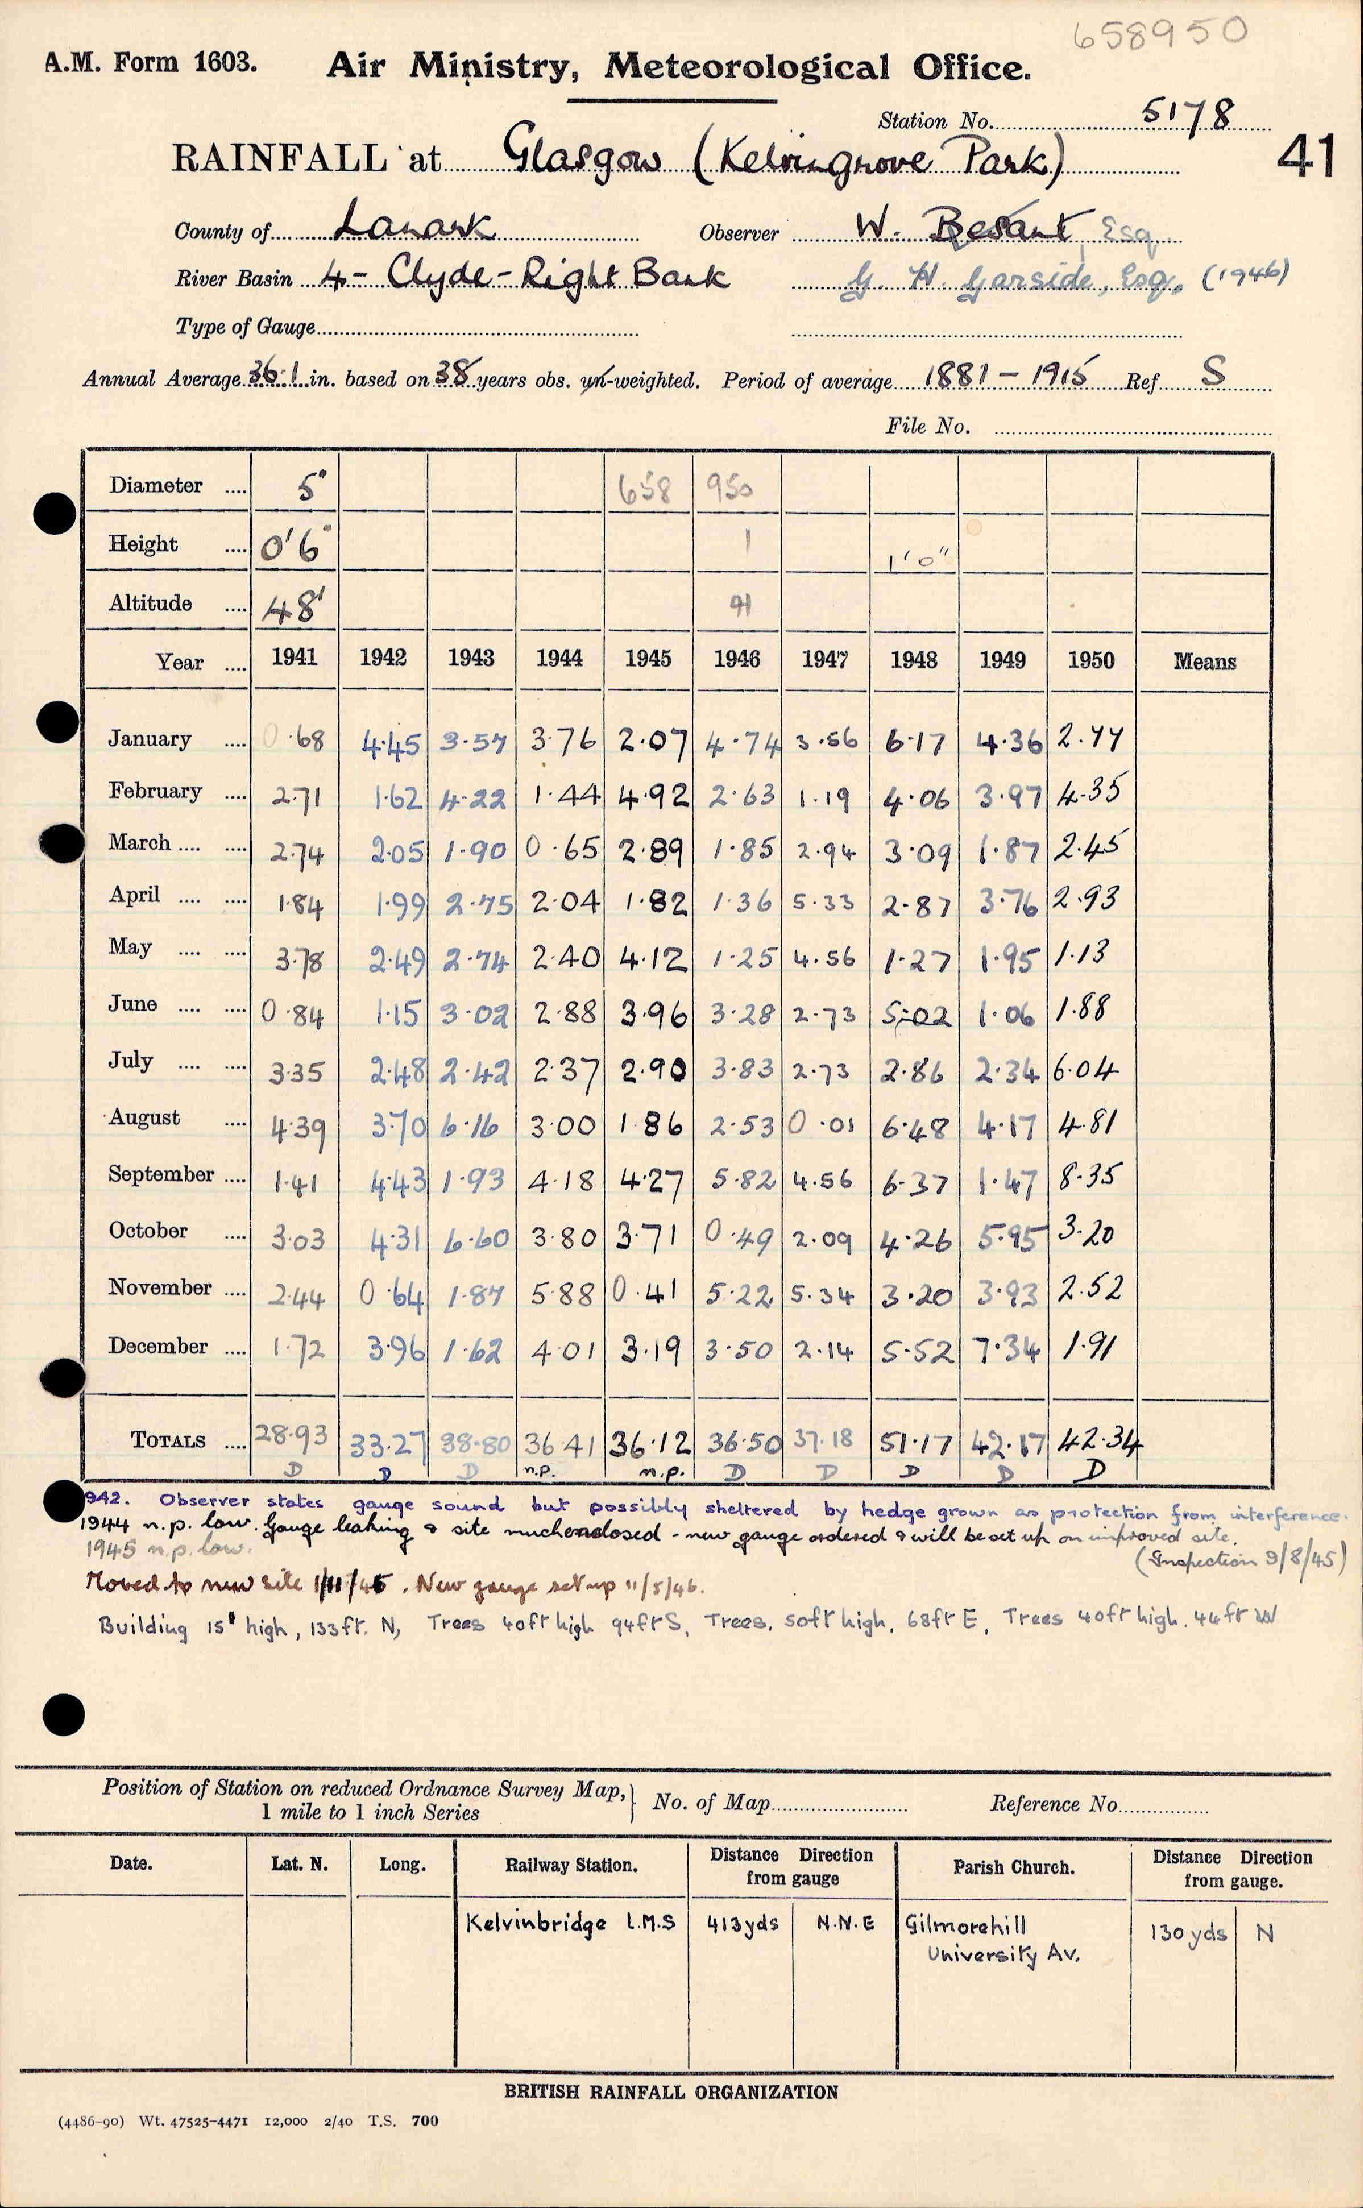 658950
A.M. Form 1603. Air Ministry, Meteorological Office.
Station No. 5178
RAINFALL at Glasgow (Kelvingrove Park) 41
County of Lanark Observer W. Besant, Esq
River Basin 4 - Clyde - Right Bank G. H. Garside, Esq. (1946)
Type of Gauge
Annual Average 36.1 in. based on 38 years obs. un-weighted. Period of average 1881 - 1915 Ref S
File No.
Diameter .... 5" 658 950
Height .... 0'6" 1 1'0"
Altitude .... 48' 41
Year .... 1941 1942 1943 1944 1945 1946 1947 1948 1949 1950 Means
January .... 0.68 4.45 3.57 3.76 2.07 4.74 3.56 6.17 4.36 2.77
February .... 2.71 1.62 4.22 1.44 4.92 2.63 1.19 4.06 3.97 4.35
March .... .... 2.74 2.05 1.90 0.65 2.89 1.85 2.94 3.09 1.87 2.45
April .... .... 1.84 1.99 2.75 2.04 1.82 1.36 5.33 2.87 3.76 2.93
May .... .... 3.78 2.49 2.74 2.40 4.12 1.25 4.56 1.27 1.95 1.13
June .... .... 0.84 1.15 3.02 2.88 3.96 3.28 2.73 5.02 1.06 1.88
July .... .... 3.35 2.48 2.42 2.37 2.90 3.83 2.73 2.86 2.34 6.04
August .... 4.39 3.70 6.16 3.00 1.86 2.53 0.01 6.48 4.17 4.81
September .... 1.41 4.43 1.93 4.18 4.27 5.82 4.56 6.37 1.47 8.35
October .... 3.03 4.31 6.60 3.80 3.71 0.49 2.09 4.26 5.95 3.20
November .... 2.44 0.64 1.87 5.88 0.41 5.22 5.34 3.20 3.93 2.52
December .... 1.72 3.96 1.62 4.01 3.19 3.50 2.14 5.52 7.34 1.91
TOTALS .... 28.93 33.27 38.80 36.41 36.12 36.50 37.18 51.17 42.17 42.34
D D D n.p. n.p. D D D D D
942. Observer states gauge sound but possibly sheltered by hedge grown as protection from interference.
1944 n.p. low. Gauge leaking & site much enclosed - new gauge ordered & will be set up on improved site.
1945 n.p. low. (Inspection 9/8/45)
Moved to new site 1/11/45. New gauge set up 11/5/46.
Building 15' high, 133ft. N, Trees 40ft high 94ft S, Trees, 50ft high, 68ft E, Trees 40ft high. 44ft W
Position of Station on reduced Ordnance Survey Map,
1 mile to 1 inch Series No. of Map Reference No
Date. Lat. N. Long. Railway Station. Distance from gauge Direction Parish Church. Distance Direction from gauge.
Kelvinbridge L.M.S 413yds N.N.E Gilmorehill 130yds N
University Av.
BRITISH RAINFALL ORGANIZATION
(4486-90) Wt. 47525-4471 12,000 2/40 T.S. 700